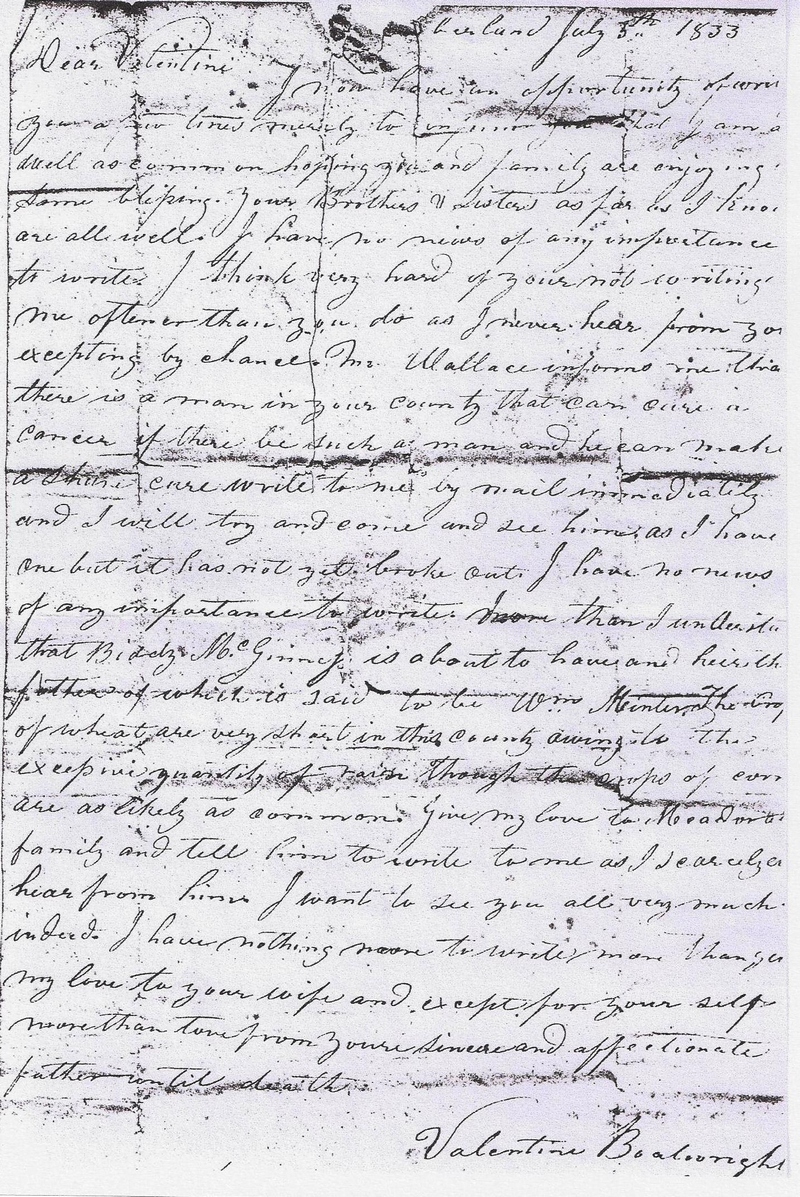 berland July 5th 1833
Dear Valentine
I now have an opportunity of wri
you a few lines merely to inform you that I am a
dwell as common hoping you and family are enjoying
same blessing. Your Brothers & Sisters as far as I kno
are all well. I have no news of any importance
to write. I think very hard of your not writing
me oftener than you do as I never hear from yo
excepting by chance. Mr. Wallace informs me tha
there is a man in your county that can cure a
cancer if there be such a man and he can make
a shure cure write to me by mail immediately
and I will try and come and see him, as I have
one but it has not yet broke out. I have no news
of any importance to write. more than I understa
that Biddy McGinness is about to have and heir th
father of which is said to be Wm Minter. The Crop
of wheat are very short in this county owing to the
excessive quantity of rain though the crops of corn
are as likely as common. Give my love to Meador
family and tell him to write to me as I scarcely e
hear from him. I want to see you all very much
indeed. I have nothing more to write more than g
my love to your wife and except for your self
more than love from youre sincere and affectionate
father until death.
Valentine Boatwright